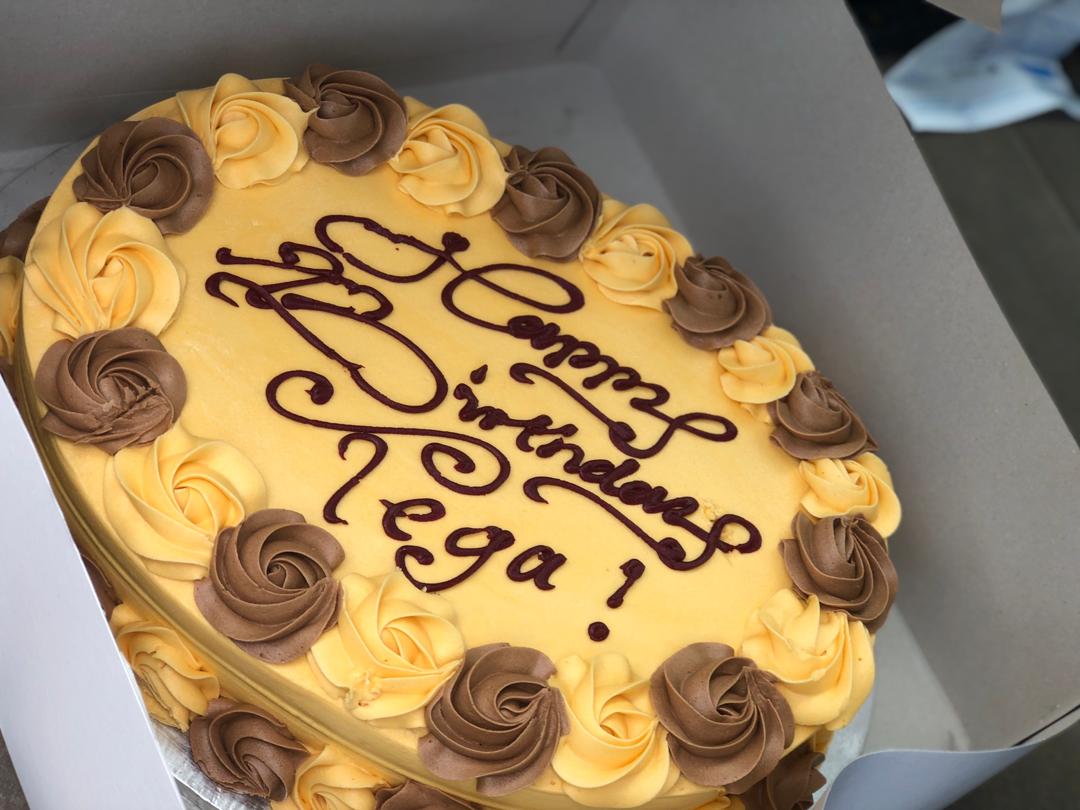 Happy
Birthday
Tega!